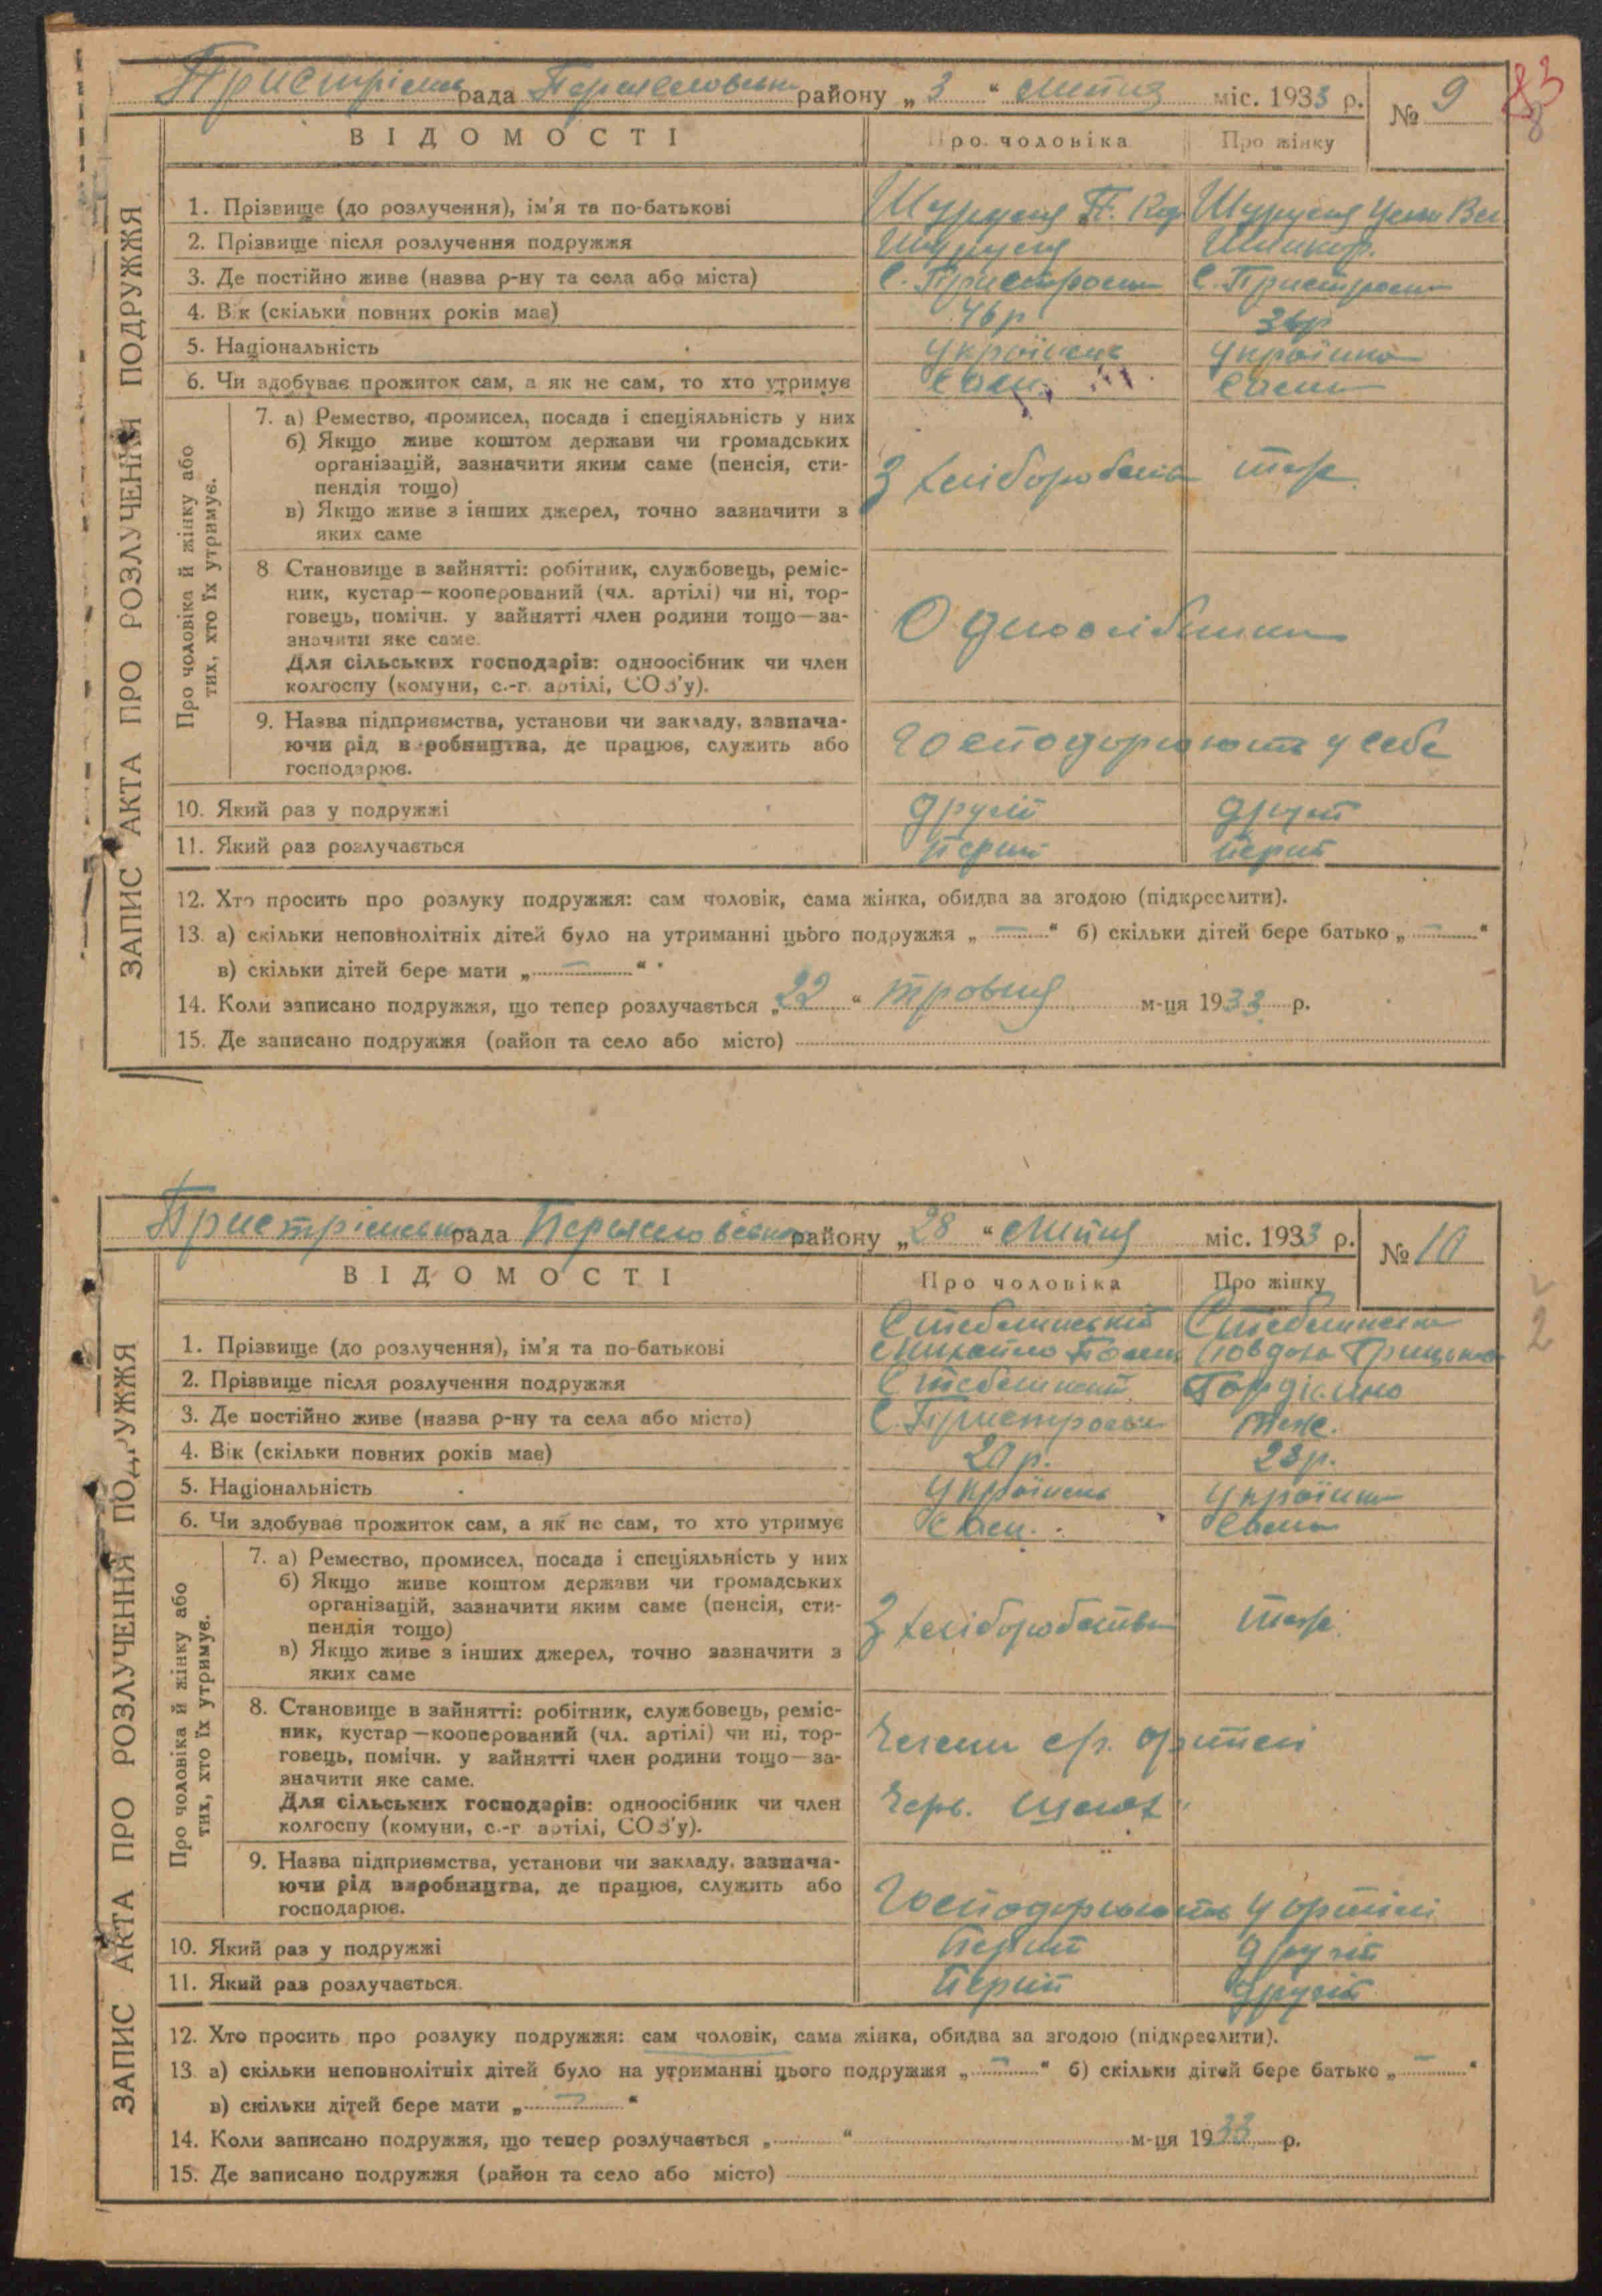 рада району „ 3 “ липня міс. 1933 р. № 9
ВІДОМОСТІ Про чоловіка Про жінку
ЗАПИС АКТА ПРО РОЗЛУЧЕННЯ ПОДРУЖЖЯ
1. Прізвище (до розлучення), ім'я та по-батькові
2. Прізвище після розлучення подружжя
3. Де постійно живе (назва р-ну та села або міста) С. С.
4. Вік (скільки повних років має) 46 р 36р
5. Національність Українець Українка
6. Чи здобуває прожиток сам, а як не сам, то хто утримує
Про чоловіка й жінку або
тих, хто їх утримує.
7. а) Ремество, промисел, посада і спеціяльність у них
б) Якщо живе коштом держави чи громадських
організацій, зазначити яким саме (пенсія, сти-
пендія тощо) З хліборобства теж
в) Якщо живе з інших джерел, точно зазначити з
яких саме
8 Становище в зайнятті: робітник, службовець, реміс-
ник, кустар—кооперований (чл. артілі) чи ні, тор-
говець, помічн. у зайнятті член родини тощо—за-
значити яке саме.
Для сільських господарів: одноосібник чи член
колгоспу (комуни, с.-г. артілі, СОЗ'у).
9. Назва підприємства, установи чи закладу, зазнача-
ючи рід виробництва, де працює, служить або господарюють у себе
господарює.
10. Який раз у подружжі другий другий
11. Який раз розлучається перший перший
12. Хто просить про розлуку подружжя: сам чоловік, сама жінка, обидва за згодою (підкреслити).
13. а) скільки неповнолітніх дітей було на утриманні цього подружжя „ — “ б) скільки дітей бере батько „ — “
в) скільки дітей бере мати „ — “
14. Коли записано подружжя, що тепер розлучається „ 22 “ травня м-ця 1933 р.
15. Де записано подружжя (район та село або місто)
рада району „ 28 “ липня міс. 1933 р. № 10
ВІДОМОСТІ Про чоловіка Про жінку
ЗАПИС АКТА ПРО РОЗЛУЧЕННЯ ПОДРУЖЖЯ
1. Прізвище (до розлучення), ім'я та по-батькові Михайло
2. Прізвище після розлучення подружжя
3. Де постійно живе (назва р-ну та села або міста) С. теж.
4. Вік (скільки повних років має) 20 р. 23 р.
5. Національність Українець Українка
6. Чи здобуває прожиток сам, а як не сам, то хто утримує
Про чоловіка й жінку або
тих, хто їх утримує.
7. а) Ремество, промисел, посада і спеціяльність у них
б) Якщо живе коштом держави чи громадських
організацій, зазначити яким саме (пенсія, сти-
пендія тощо) З хліборобства теж
в) Якщо живе з інших джерел, точно зазначити з
яких саме
8. Становище в зайнятті: робітник, службовець, реміс-
ник, кустар—кооперований (чл. артілі) чи ні, тор-
говець, помічн. у зайнятті член родини тощо—за-
значити яке саме.
Для сільських господарів: одноосібник чи член Черв. Шлях
колгоспу (комуни, с.-г артілі, СОЗ'у).
9. Назва підприємства, установи чи закладу, зазнача-
ючи рід виробництва, де працює, служить або господарюють у артілі
господарює.
10. Який раз у подружжі перший другий
11. Який раз розлучається. перший другий
12. Хто просить про розлуку подружжя: сам чоловік, сама жінка, обидва за згодою (підкреслити).
13. а) скільки неповнолітніх дітей було на утриманні цього подружжя „ — “ б) скільки дітей бере батько „ — “
в) скільки дітей бере мати „ — “
14. Коли записано подружжя, що тепер розлучається „ “ м-ця 1933 р.
15. Де записано подружжя (район та село або місто)